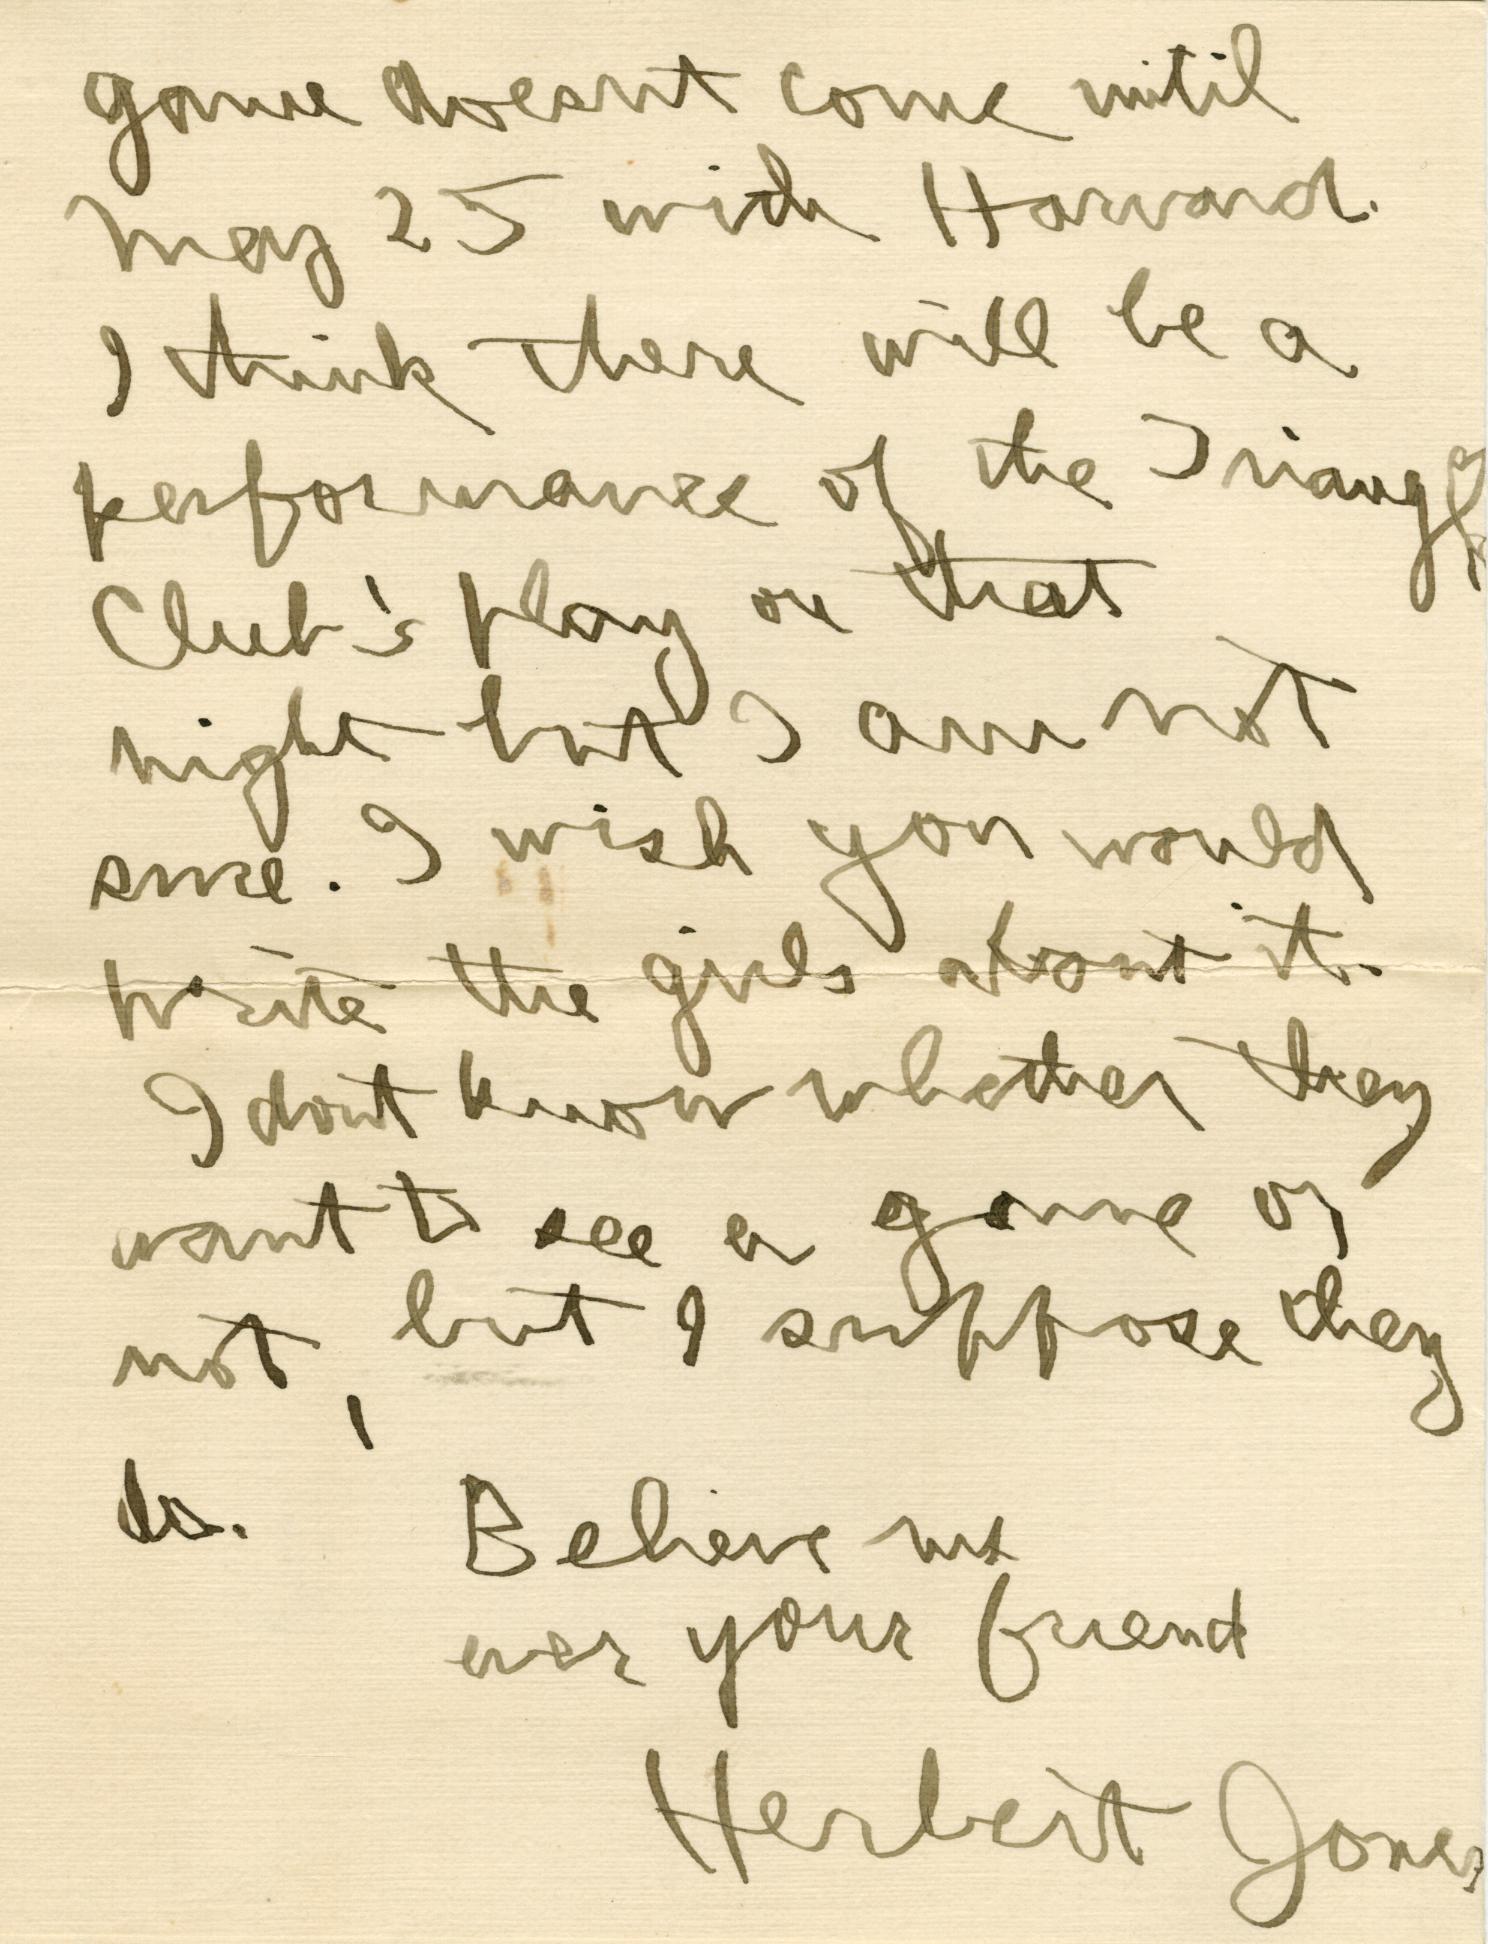 game doesnt come until
May 25 with Harvard.
I think there will be a
performance of the Triangle
Club's play on that
night but I am not
sure. I wish you would
write the girls about it.
I dont know whether they
want to see a game or
not, but I suppose they
do. Believe me
ever your friend
Herbert Jones